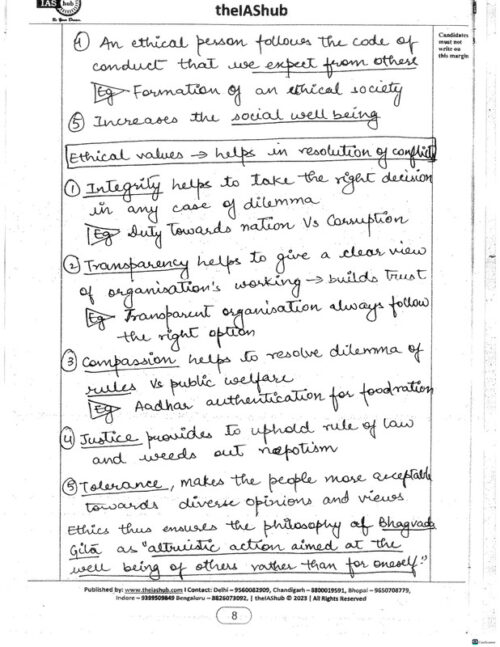 IAS hub
theIAShub
Candidates
must not
write on
this margin
④ An ethical person follows the code of
conduct that we expect from others
Eg Formation of an ethical society
⑤ Increases the social well being
Ethical values → helps in resolution of conflict
① Integrity helps to take the right decision
in any case of dilemma
Eg Duty towards nation Vs Corruption
② Transparency helps to give a clear view
of organisation's working → builds trust
Eg Transparent organisation always follow
the right option
③ Compassion helps to resolve dilemma of
rules Vs public welfare
Eg Aadhar authentication for food ration
④ Justice provides to uphold rule of law
and weeds out nepotism
⑤ Tolerance, makes the people more acceptable
towards diverse opinions and views
Ethics thus ensures the philosophy of Bhagvada
Gita as "altruistic action aimed at the
well being of others rather than for oneself."
Published by: www.theiashub.com I Contact: Delhi – 9560082909, Chandigarh – 8800019591, Bhopal – 9650708779,
Indore – 9399509849 Bengaluru – 8826073092, | theIAShub © 2023 | All Rights Reserved
8